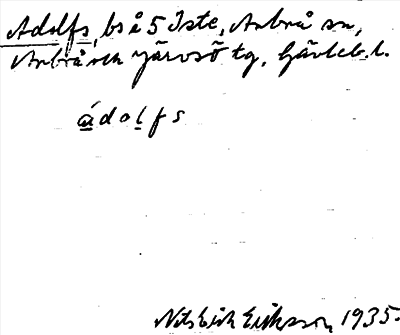 Adolfs, bs å 5 Iste, Arbrå sn,
Arbrå och Järvsö tg, Gävleb. l.
ádolfs
Nils Erik Eriksson 1935.